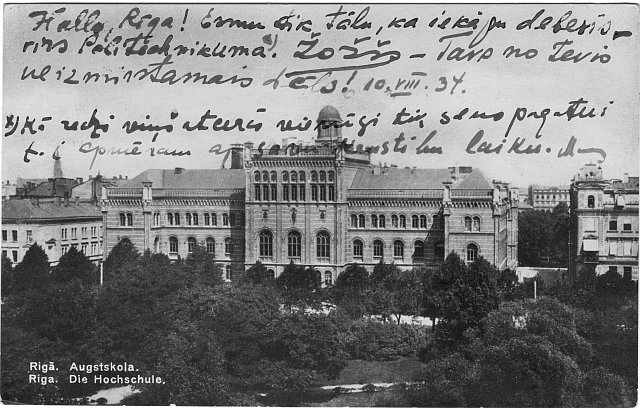 Hallo, Rīga! Esmu tik tālu, ka iekāpu debess-
rīvs Politechnikumā! Žožis – Tavs no tevis
neizmirstamais dēls! 10.VIII.34.
*) Kā redzi viņš atceras vienīgi tik seno pagātni
t.i. apmēram laiku.
Rīgā. Augstskola.
Riga. Die Hochschule.